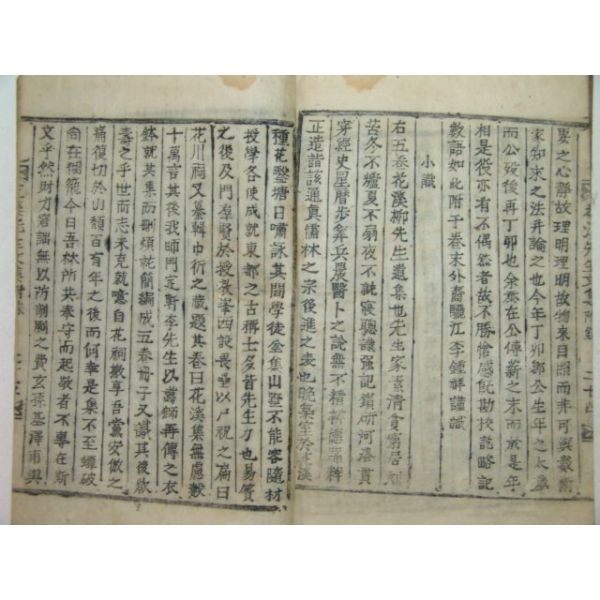 要之心靜故理明理明故物來自照而非可與數術
家知來之法幷論之也今年丁卯卽公生年之太歲
而公歿後再丁卯也余忝在公傳薪之末而於是年
相是役亦有不偶然者故不勝愴感旣勘校記略記
附此呼於卷末外裔驪江李鍾祥謹識
小識
右五卷花溪柳先生遺集也先生家素淸貧窮居刻
苦冬不爐夏不扇夜不就寢聰識强記鑽硏河洛貫
穿經史星曆步筭兵農醫卜之書無不精
正造詣該通眞儒林之宗後進之表也晚築室於花溪
種花鑿塘日嘯詠其間學徒坌集山墅不能容隨材
授學各使成就東都之古稱士多皆先生力也易簀
之後及門羣賢於授敎峯西設畏壘以尸祝之扁曰
花川祠又纂輯巾衍之藏題其卷曰花溪集無慮數
十萬言其後我師門定軒李先生以嫡師再傳之衣
鉢就其集而刪煩就簡編成五卷冊子又識其後啟
壽之乎世而志未克就噫自花祠數享吾黨安倣之
痛復切於山頹百有年之後而何幸是集不至蟫破
尙在楣籠今日吾林所共恭守而起敬者不專在斯
文乎然財力窮詘無以爲剞劂之費玄孫基澤甫與